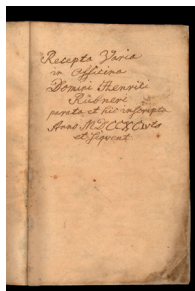 Recepta Varia
in Officina
Domini Henrici
Rübneri
parata et hic inscripta
Anno MDCCXC
et sequent